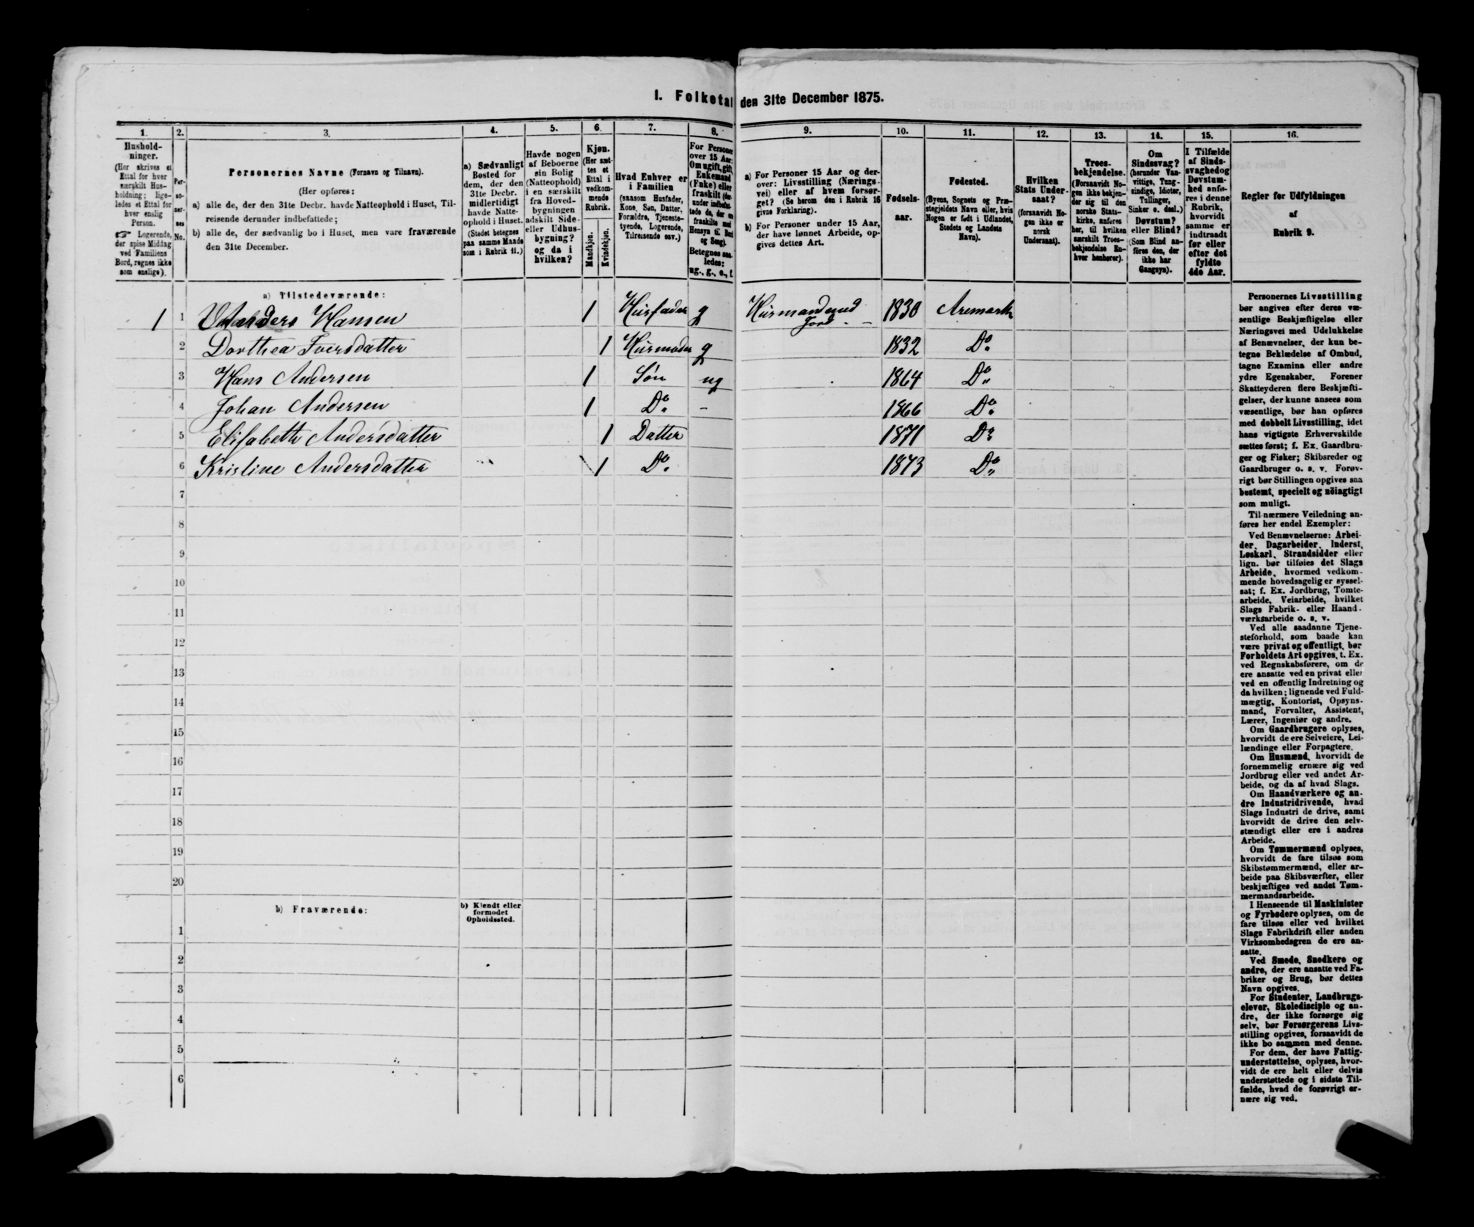 I. Folketal den 31te December 1875.
1. 2. 3. 4. 5. 6. 7. 8. 9. 10. 11. 12. 13. 14. 15. 16.
Hushold-
ninger.
(Her skrives et
Ettal for hver
særskilt Hus-
holdning; lige-
ledes et Ettal for
hver enslig
Person.
☞ Logerende,
der spise Middag
ved Familiens
Bord, regnes ikke
som enslige).
Per-
so-
ner-
nes
No.
Personernes Navne (Fornavn og Tilnavn).
(Her opføres:
a) alle de, der den 31te Decbr. havde Natteophold i Huset, Til-
reisende derunder indbefattede;
b) alle de, der sædvanlig bo i Huset, men vare fraværende
den 31te December.
a) Sædvanligt
Bosted for
dem, der den
31te Decbr.
midlertidigt
havde Natte-
ophold i Huset.
(Stedet betegnes
paa samme Maade
som i Rubrik 11.)
Havde nogen
af Beboerne
sin Bolig
(Natteophold)
i en særskilt
fra Hoved-
bygningen
adskilt Side-
eller Udhus-
bygning?
og da i
hvilken?
Kjøn.
(Her sæt-
tes et
Ettal i
vedkom-
mende
Rubrik.
Mandkjøn.
Kvindekjøn.
Hvad Enhver er
i Familien
(saasom Husfader,
Kone, Søn, Datter,
Forældre, Tjeneste-
tyende, Logerende,
Tilreisende osv.)
For Personer
over 15 Aar:
Om ugift, gift,
Enkemand
(Enke) eller
fraskilt (der-
under indbefat-
tede de, der ere
fraskilte med
Hensyn til Bord
og Seng).
Betegnes saa-
ledes:
ug., g., e., f.
a) For Personer 15 Aar og der-
over: Livsstilling (Nærings-
vei) eller af hvem forsør-
get? (Se herom den i Rubrik 16
givne Forklaring).
b) For Personer under 15 Aar,
der have lønnet Arbeide, op-
gives dettes Art.
Fødsels-
aar.
Fødested.
(Byens, Sognets og Præ-
stegjeldets Navn eller, hvis
Nogen er født i Udlandet,
Stedets og Landets
Navn).
Hvilken
Stats Under-
saat?
(forsaavidt No-
gen ikke er
norsk
Undersaat).
Troes-
bekjendelse.
(Forsaavidt No-
gen ikke bekjen-
der sig til den
norske Stats-
kirke, anføres
her, til hvilken
særskilt Troes-
bekjendelse En-
hver henhører).
Om
Sindssvag?
(herunder Van-
vittige, Tung-
sindige, Idioter,
Tullinger,
Sinker o. desl.)
Døvstum?
eller Blind?
(Som Blind an-
føres den, der
ikke har
Gangsyn).
I Tilfælde
af Sinds-
svaghed og
Døvstum-
hed anfø-
res i denne
Rubrik,
hvorvidt
samme er
indtraadt
før eller
efter det
fyldte
4de Aar.
Regler for Udfyldningen
af
Rubrik 9.
a) Tilstedeværende:
1 1 Anders Hansen 1 Husfader g Husmand med Jord 1830 Aremark
2 Dorthea Iversdatter 1 Husmoder g 1832 Do
3 Hans Andersen 1 Søn ug 1864 Do
4 Johan Andersen 1 Do - 1866 Do
5 Elisabeth Andersdatter 1 Datter 1871 Do
6 Kristine Andersdatter 1 Do 1873 Do
7
8
9
10
11
12
13
14
15
16
17
18
19
20
b) Fraværende:
b) Kjendt eller
formodet
Opholdssted.
1
2
3
4
5
6
Personernes Livsstilling
bør angives efter deres væ-
sentlige Beskjæftigelse eller
Næringsvei med Udelukkelse
af Benævnelser, der kun be-
tegne Beklædelse af Ombud,
tagne Examina eller andre
ydre Egenskaber. Forener
Skatteyderen flere Beskjæfti-
gelser, der kunne ansees som
væsentlige, bør han opføres
med dobbelt Livsstilling, idet
hans vigtigste Erhvervskilde
sættes først; f. Ex. Gaardbru-
ger og Fisker; Skibsreder og
Gaardbruger o. s. v. Forøv-
rigt bør Stillingen opgives saa
bestemt, specielt og nöiagtigt
som muligt.
Til nærmere Veiledning an-
føres her endel Exempler:
Ved Benævnelserne: Arbei-
der, Dagarbeider, Inderst,
Løskarl, Strandsidder eller
lign. bør tilføies det Slags
Arbeide, hvormed vedkom-
mende hovedsagelig er syssel-
sat; f. Ex. Jordbrug, Tomte-
arbeide, Veiarbeide, hvilket
Slags Fabrik- eller Haand-
værksarbeide o. s. v.
Ved alle saadanne Tjene-
steforhold, som baade kan
være privat og offentligt, bør
Forholdets Art opgives, t. Ex.
ved Regnskabsførere, om de
ere ansatte ved en privat eller
ved en offentlig Indretning og
da hvilken; lignende ved Fuld-
mægtig, Kontorist, Opsyns-
mand, Forvalter, Assistent,
Lærer, Ingeniør og andre.
Om Gaardbrugere oplyses,
hvorvidt de ere Selveiere, Lei-
lændinge eller Forpagtere.
Om Husmænd, hvorvidt de
fornemmelig ernære sig ved
Jordbrug eller ved andet Ar-
beide, og da af hvad Slags.
Om Haandværkere og an-
dre Industridrivende, hvad
Slags Industri de drive, samt
hvorvidt de drive den selv-
stændigt eller ere i andres
Arbeide.
Om Tømmermænd oplyses,
hvorvidt de fare tilsøs som
Skibstømmermænd, eller ar-
beide paa Skibsværfter, eller
beskjæftiges ved andet Tøm-
mermandsarbeide.
I Henseende til Maskinister
og Fyrbødere oplyses, om de
fare tilsøs eller ved hvilket
Slags Fabrikdrift eller anden
Virksomhedsgren de ere an-
satte.
Ved Smede, Snedkere og
andre, der ere ansatte ved Fa-
briker og Brug, bør dettes
Navn opgives.
For Studenter, Landbrugs-
elever, Skoledisciple og an-
dre, der ikke forsørge sig
selv, bør Forsørgerens Livs-
stilling opgives, forsaavidt de
ikke bo sammen med denne.
For dem, der have Fattig-
understøttelse, oplyses, hvor-
vidt de ere helt eller delvis
understøttede og i sidste Til-
fælde, hvad de forøvrigt er-
nære sig ved.